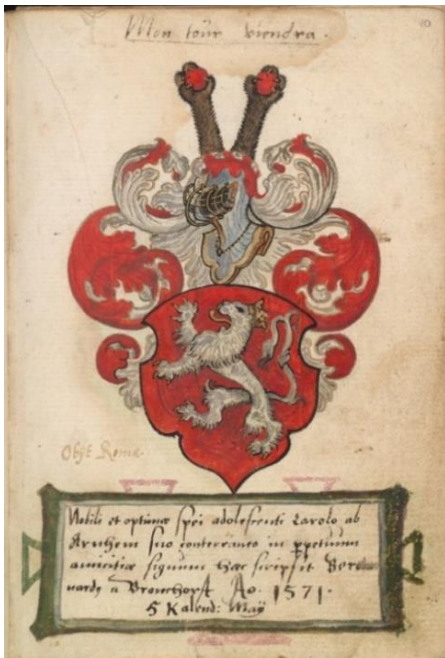 Mon tour viendra.
Obijt Romæ.
Nobili et optimæ spei adolescenti Carolo ab
Arnhem suo conterraneo in ppetuum
amicitiæ signum hæc scripsit Bern
nardg a Bronchorst Ao. 1571.
5 Kalend: Maij